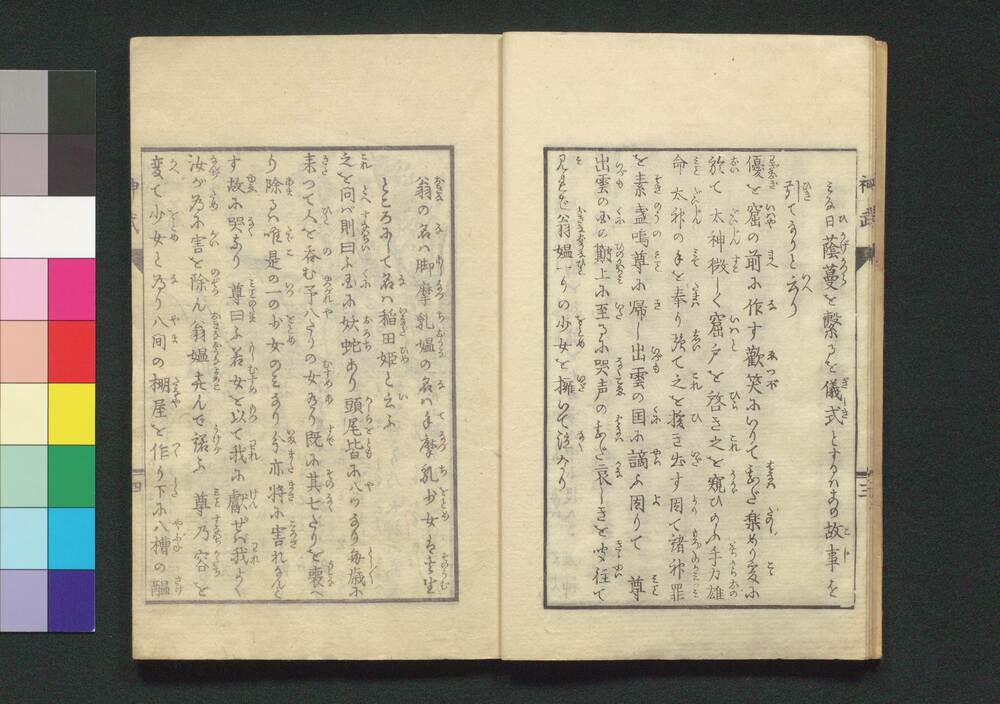 る日蔭蔓を繋るを儀式とするハ此の故事を
引てなりと云り
優を窟の前に作す歓笑にいりてあそ楽めり爰に
於て太神微しく窟戸を啓き之を窺ひ給ふ手力雄
命太神の手を奉り
て之を援き出す因て諸神罪
を素盞嗚尊に帰し出雲の国に謫ふ因りて尊
出雲の
の
上に至るに哭声の
哀しきを
往て
見れば翁媼一りの少女を擁いて泣けり
翁の名ハ脚摩乳媼の名ハ手摩乳少女は
生
ところにして名ハ稲田姫と云ふ
之を問バ則曰ふ
に妖蛇あり頭尾皆に八ツあり毎歳に
来つて人を呑む予八たりの女あり既に其七たりを喪へ
り除るハ唯是の一の少女のミなり今亦将に害れんとす
故に哭なり尊曰ふ若女を以て我に献せバ我よく
汝が為に害を除ん翁媼
んで諾ふ尊乃容を
変て少女と為り八間の棚屋を作り下に八槽の醞
神武
三
四